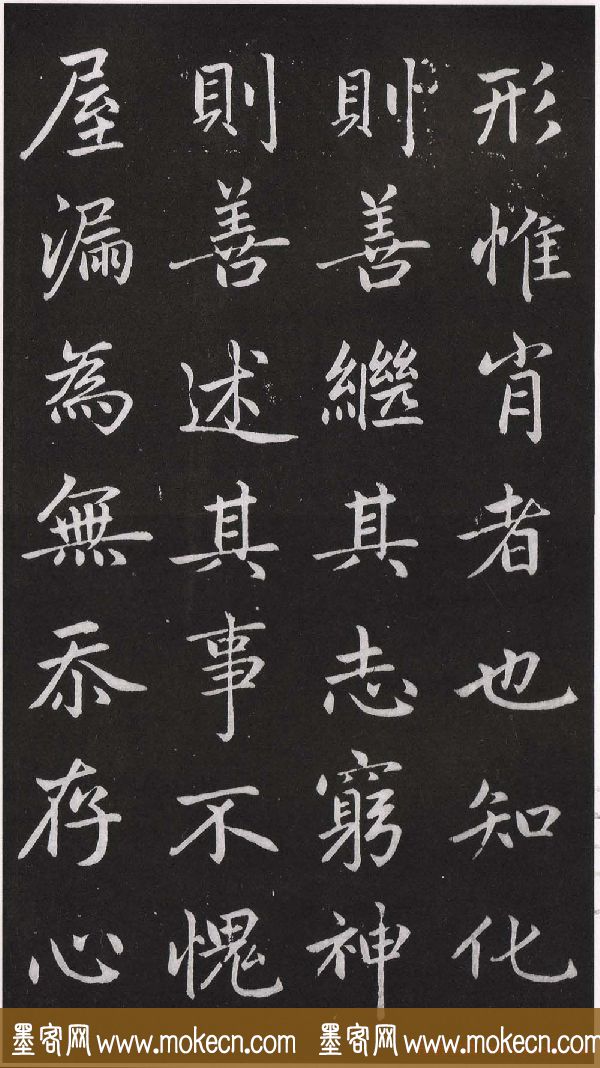 形惟肖者也知化
則善繼其志窮神
則善述其事不愧
屋漏為無忝存心
墨客网 www.mokecn.com 墨客网 www.mokecn.com